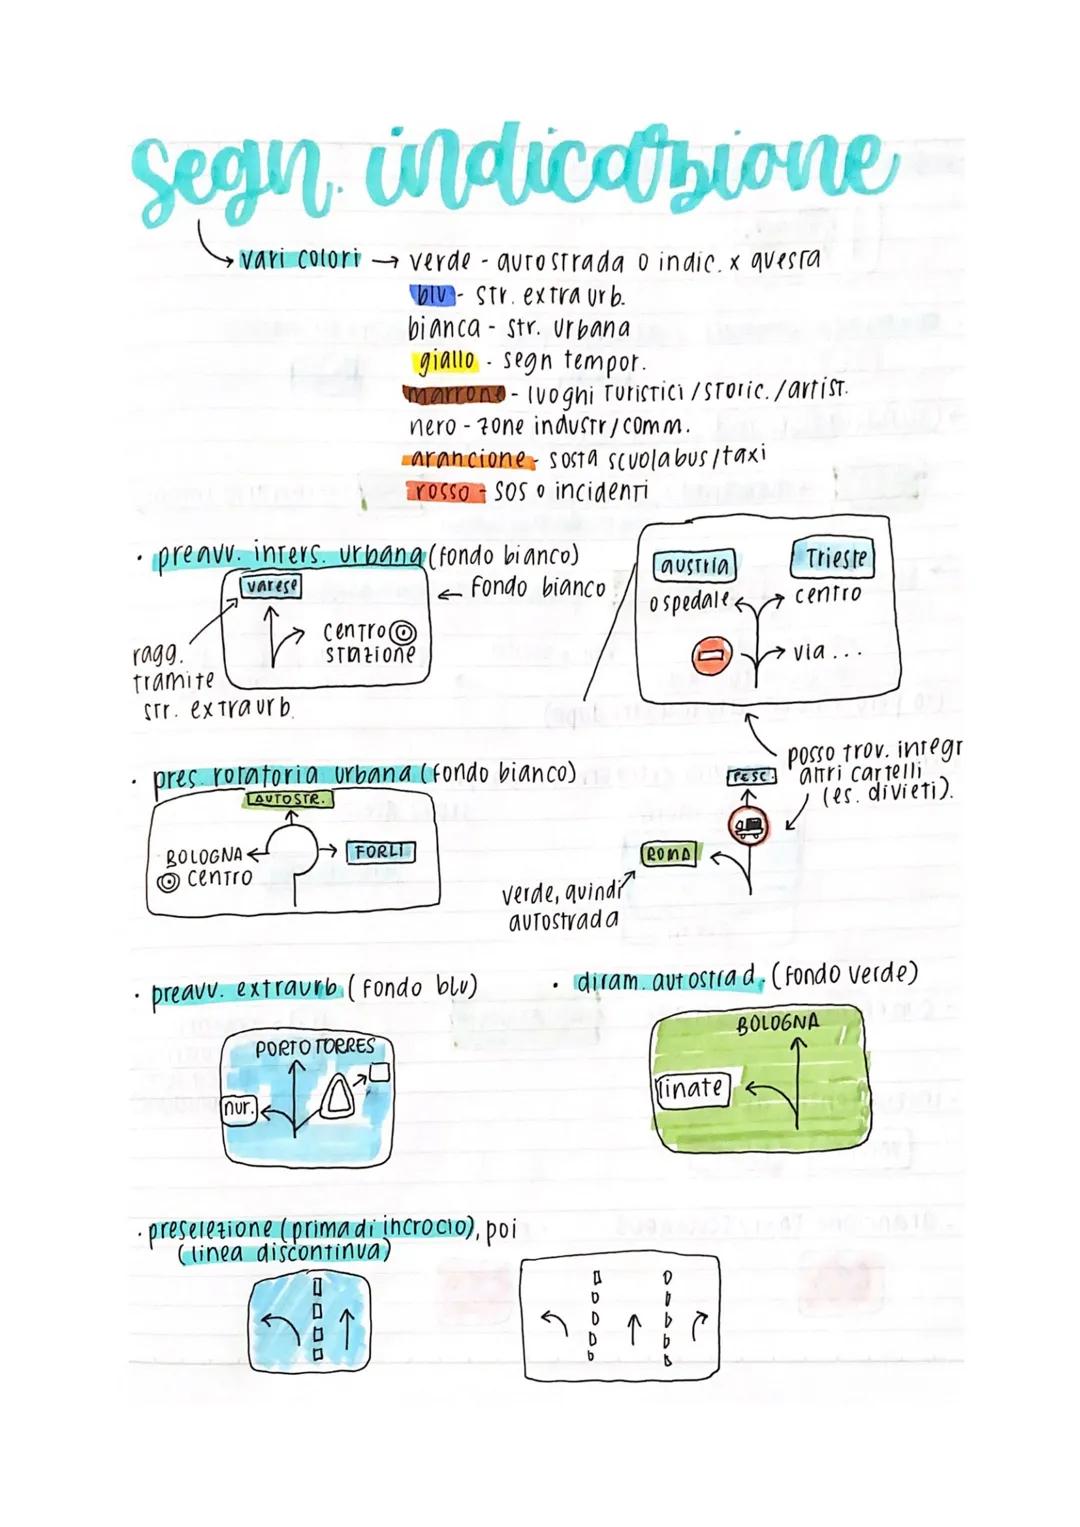 segn. indicazione
vari colori → verde - autostrada o indic. x questa
blu - str. extraurb.
bianca - str. urbana
giallo - segn tempor.
marrone - luoghi turistici/storic./artist.
nero - zone industr/comm.
arancione - sosta scuolabus/taxi
rosso - SOS o incidenti
• preavv. inters. urbana (fondo bianco)
← Fondo bianco
varese
centro
stazione
ragg.
tramite
str. extraurb.
austria
Trieste
ospedale
centro
via ...
posso trov. integr
altri cartelli
(es. divieti).
• pres. rotatoria urbana (fondo bianco)
AUTOSTR.
BOLOGNA
centro
FORLÌ
PESC.
ROMA
verde, quindi
autostrada
• preavv. extraurb. (fondo blu)
PORTO TORRES
nur.
• diram. autostrad. (fondo verde)
BOLOGNA
linate
• preselezione (prima di incrocio), poi
(linea discontinua)